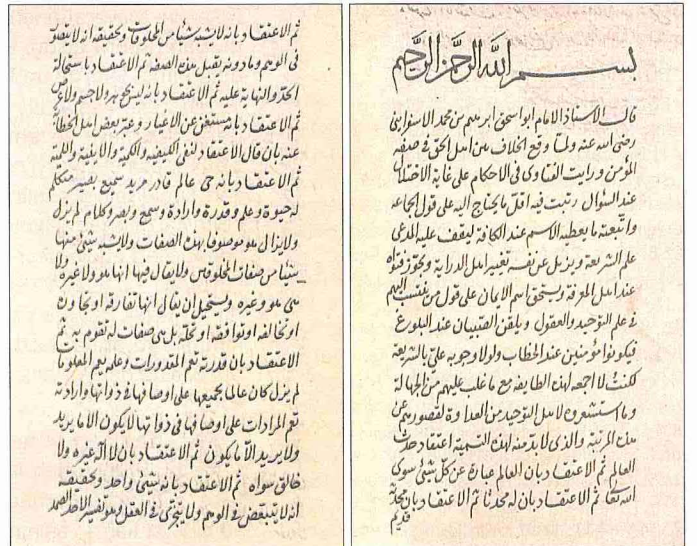 بسم الله الرحمن الرحيم
قال الاستاذ الامام ابو اسحق ابرهيم بن محمد الاسفرايني
رضي الله عنه ولما وقع الخلاف بين اهل الحق في صفة
المؤمن ورايت الفتاوى في الاحكام على غاية الاختلال
عند السؤال رتبت فيه اقل ما يحتاج اليه على قول الجماعة
واتبعته ما يعطيه الاسم عند الكافة ليقف عليه المدعي
علم الشريعة ويزيل عن نفسه تغيير اهل الدراية ويجوز فتواه
عند اهل المعرفة ويستحق اسم الايمان على قول من ينتسب اليهم
في علم التوحيد والعقول ويلقن الصبيان عند البلوغ
فيكونوا مؤمنين عند الخطاب ولولا وجوبه علي بالشريعة
لكنت لا اجمعه لهذه الطايفة مع ما غلب عليهم من الجهالة
وما استشعروه لاهل التوحيد من العداوة لقصورهم عن
هذه المرتبة والذي لا بد منه لهذه التسمية اعتقاد حدث
العالم ثم الاعتقاد بان العالم عبارة عن كل شيئ سوى
الله تعالى ثم الاعتقاد بان له محدثا ثم الاعتقاد بان محدثه
قديم
ثم الاعتقاد بانه لا يشبه شيئا من المخلوقات وتحقيقه انه لا يتصور
في الوهم وما دونه يقبل هذه الصفة ثم الاعتقاد باستحالة
الحد والنهاية عليه ثم الاعتقاد بانه ليس بجوهر ولا جسم ولا عرض
ثم الاعتقاد بانه مستغن عن الاغيار وعبر بعض اهل الخطا
عنه بان قال الاعتقاد لنفي الكيفية والكمية والاينية واللمية
ثم الاعتقاد بانه حي عالم قادر مريد سميع بصير متكلم
له حيوة وعلم وقدرة وارادة وسمع وبصر وكلام لم يزل
ولا يزال هو موصوفا بهذه الصفات ولا يشبه شيئ منها
شيئا من صفات المخلوقين ولا يقال فيها انها هو ولا غيره ولا
هي هو وغيره ويستحيل ان يقال انها تفارقه او تجاوره
او تخالفه او توافقه او تحله بل هي صفات له تقوم به ثم
الاعتقاد بان قدرته تعم المقدورات وعلمه يعم المعلومات
لم يزل كان عالما بجميعها على اوصافها في ذواتها وارادته
تعم المرادات على اوصافها في ذواتها لا يكون الا ما يريد
ولا يريد الا ما يكون ثم الاعتقاد بان لا اله غيره ولا
خالق سواه ثم الاعتقاد بانه شيئ واحد وتحقيقه
انه لا يتبعض في الوهم ولا يتجزى في العقل وهو تفسير الاحد الصمد